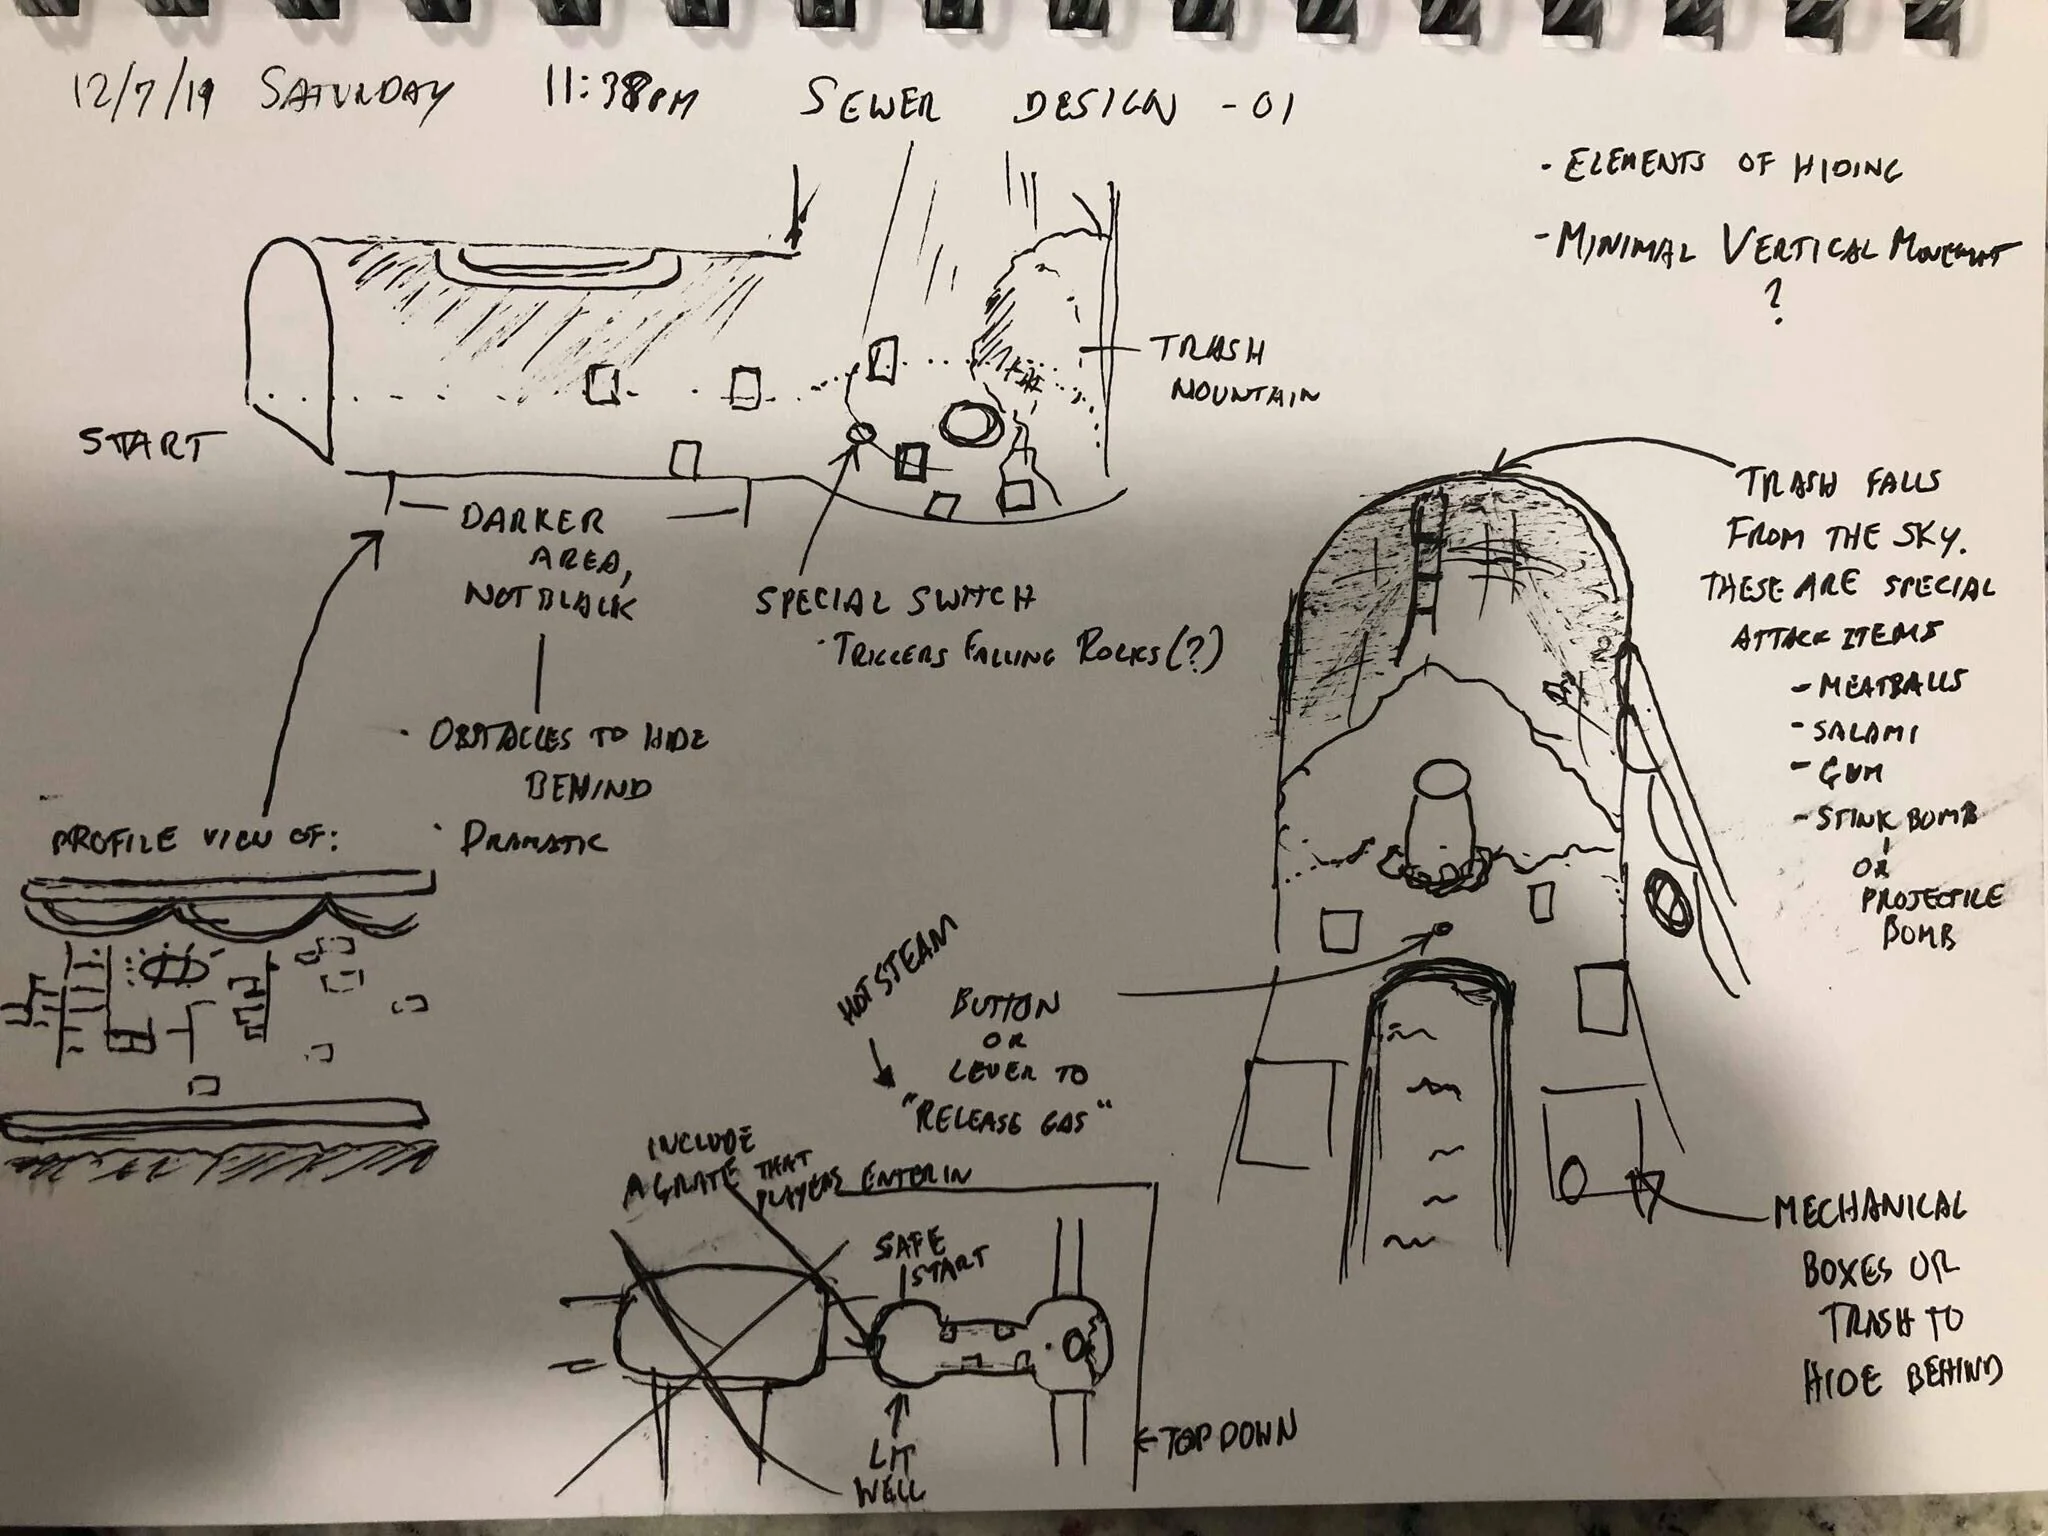 12/7/19 SATURDAY 11:38PM SEWER DESIGN -01
- ELEMENTS OF HIDING
- MINIMAL VERTICAL MOVEMENT
?
TRASH
MOUNTAIN
START
DARKER
AREA,
NOT BLACK
· OBSTACLES TO HIDE
BEHIND
· DRAMATIC
SPECIAL SWITCH
· TRIGGERS FALLING ROCKS(?)
TRASH FALLS
FROM THE SKY.
THESE ARE SPECIAL
ATTACK ITEMS
- MEATBALLS
- SALAMI
- GUM
- STINK BOMB
OR
PROJECTILE
BOMB
PROFILE VIEW OF:
HOT STEAM
BUTTON
OR
LEVER TO
"RELEASE GAS"
INCLUDE
A GRATE THAT
PLAYERS ENTER IN
SAFE
START
LIT
WELL
TOP DOWN
MECHANICAL
BOXES OR
TRASH TO
HIDE BEHIND